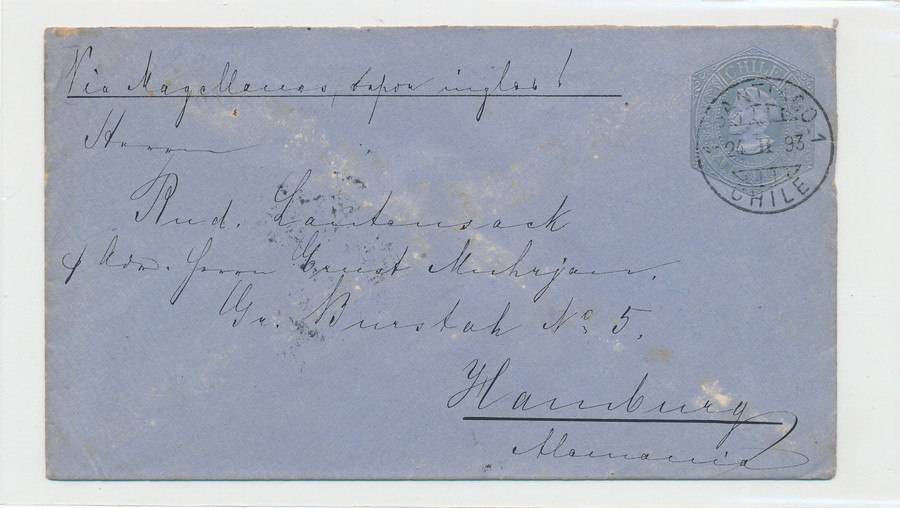 Via Magellanes, vapor ingles!
Herrn
Rud. Lautensack
p Adr. Herrn Ernst Mehrjan.
Gr. Burstah No. 5.
Hamburg
Alemania
CHILE
SANTIAGO 1
24 II 93
CHILE